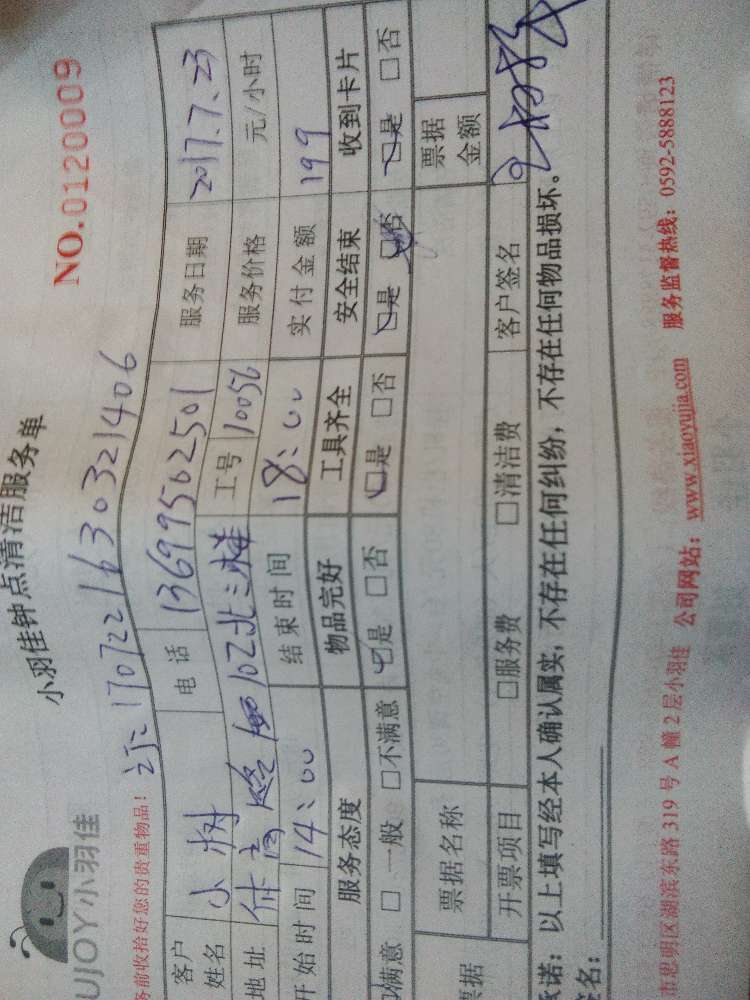 UJOY小羽佳
小羽佳钟点清洁服务单
NO.0120009
务前收拾好您的贵重物品!
1707221630321406
客户姓名 小树 电话 13699502501 服务日期 2017.7.23
地址 工号 10056 服务价格 元/小时
开始时间 14:00 结束时间 18:00 实付金额 199
服务态度 物品完好 工具齐全 安全结束 收到卡片
满意 □ 一般 □不满意 □是 □否 □是 □否 □是 □否 □是 □否
票据 票据名称 票据金额
开票项目 □服务费 □清洁费 客户签名
承诺:以上填写经本人确认属实,不存在任何纠纷,不存在任何物品损坏。
签名:
市思明区湖滨东路 319 号 A 幢 2 层小羽佳 公司网站:www.xiaoyujia.com 服务监督热线:0592-5888123